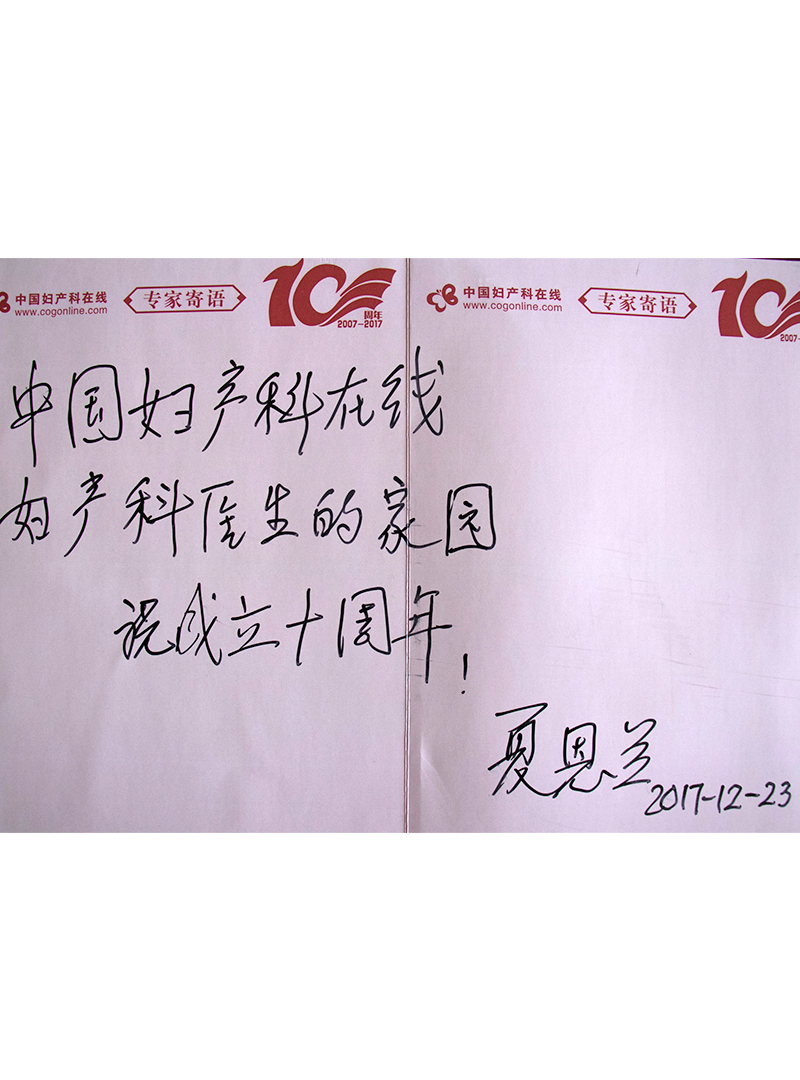 中国妇产科在线
www.cogonline.com
专家寄语
10
周年
2007-2017
中国妇产科在线
www.cogonline.com
专家寄语
10
2007-
中国妇产科在线
妇产科医生的家园
祝成立十周年!
夏恩兰
2017-12-23